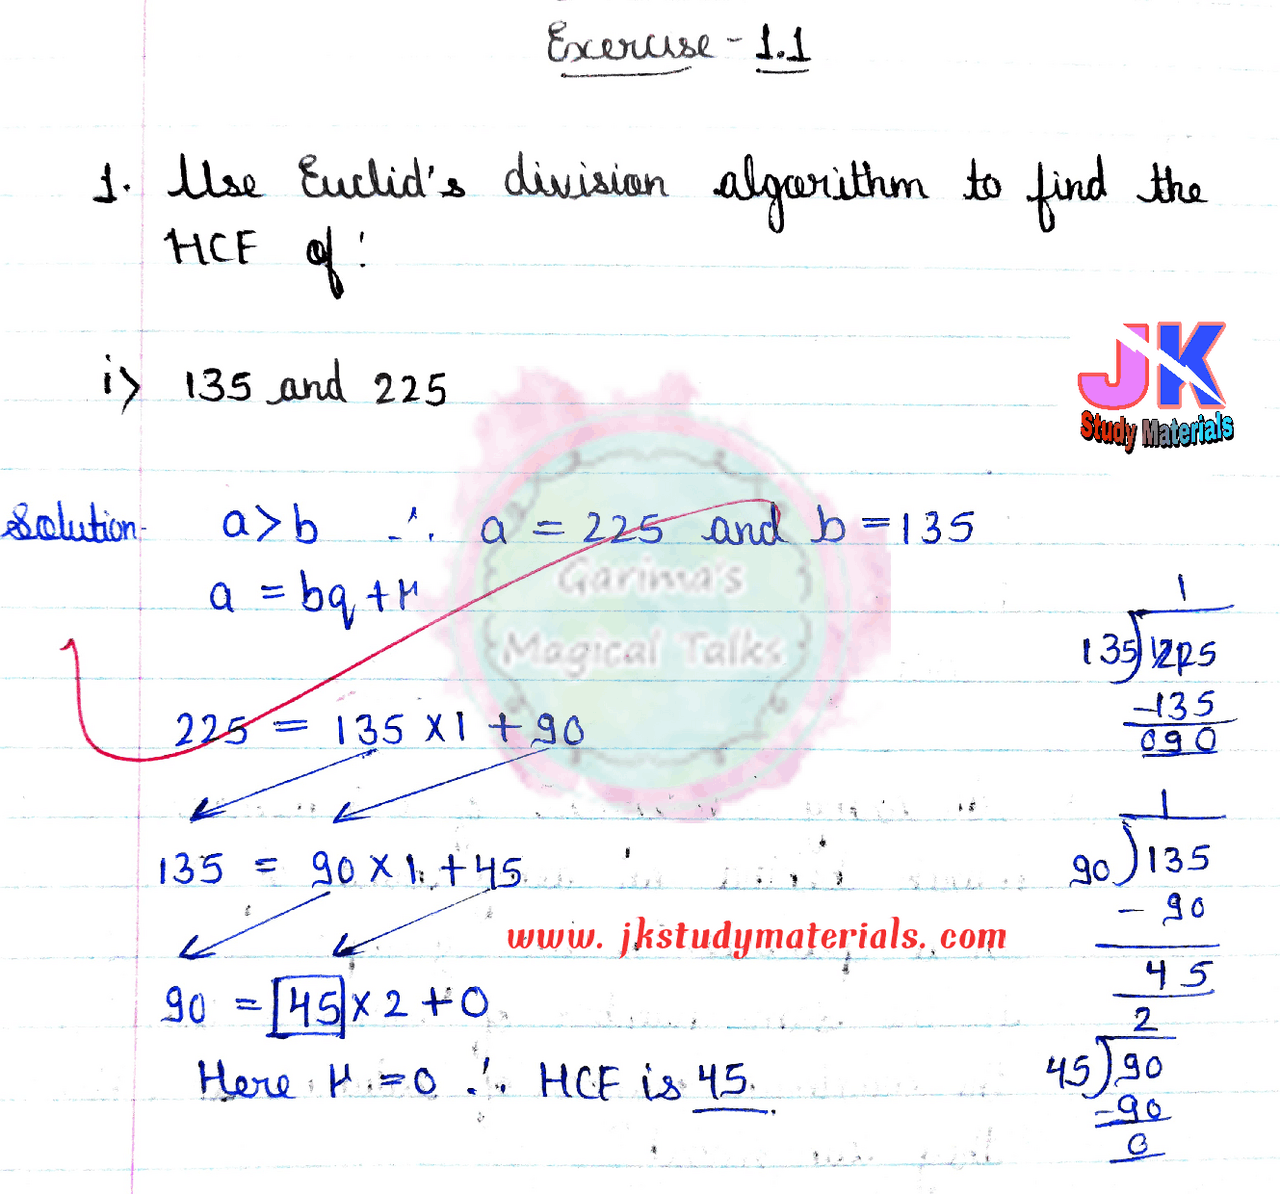 Exercise - 1.1
1. Use Euclid's division algorithm to find the
HCF of:
i) 135 and 225
JK
Study Materials
Solution- a > b ∴ a = 225 and b = 135
a = bq + r
Garima's
Magical Talks
225 = 135 × 1 + 90
135 = 90 × 1 + 45
www. jkstudymaterials. com
90 = 45 × 2 + 0
Here r = 0 ∴ HCF is 45.
1
135)225
-135
090
1
90)135
- 90
45
2
45)90
-90
0